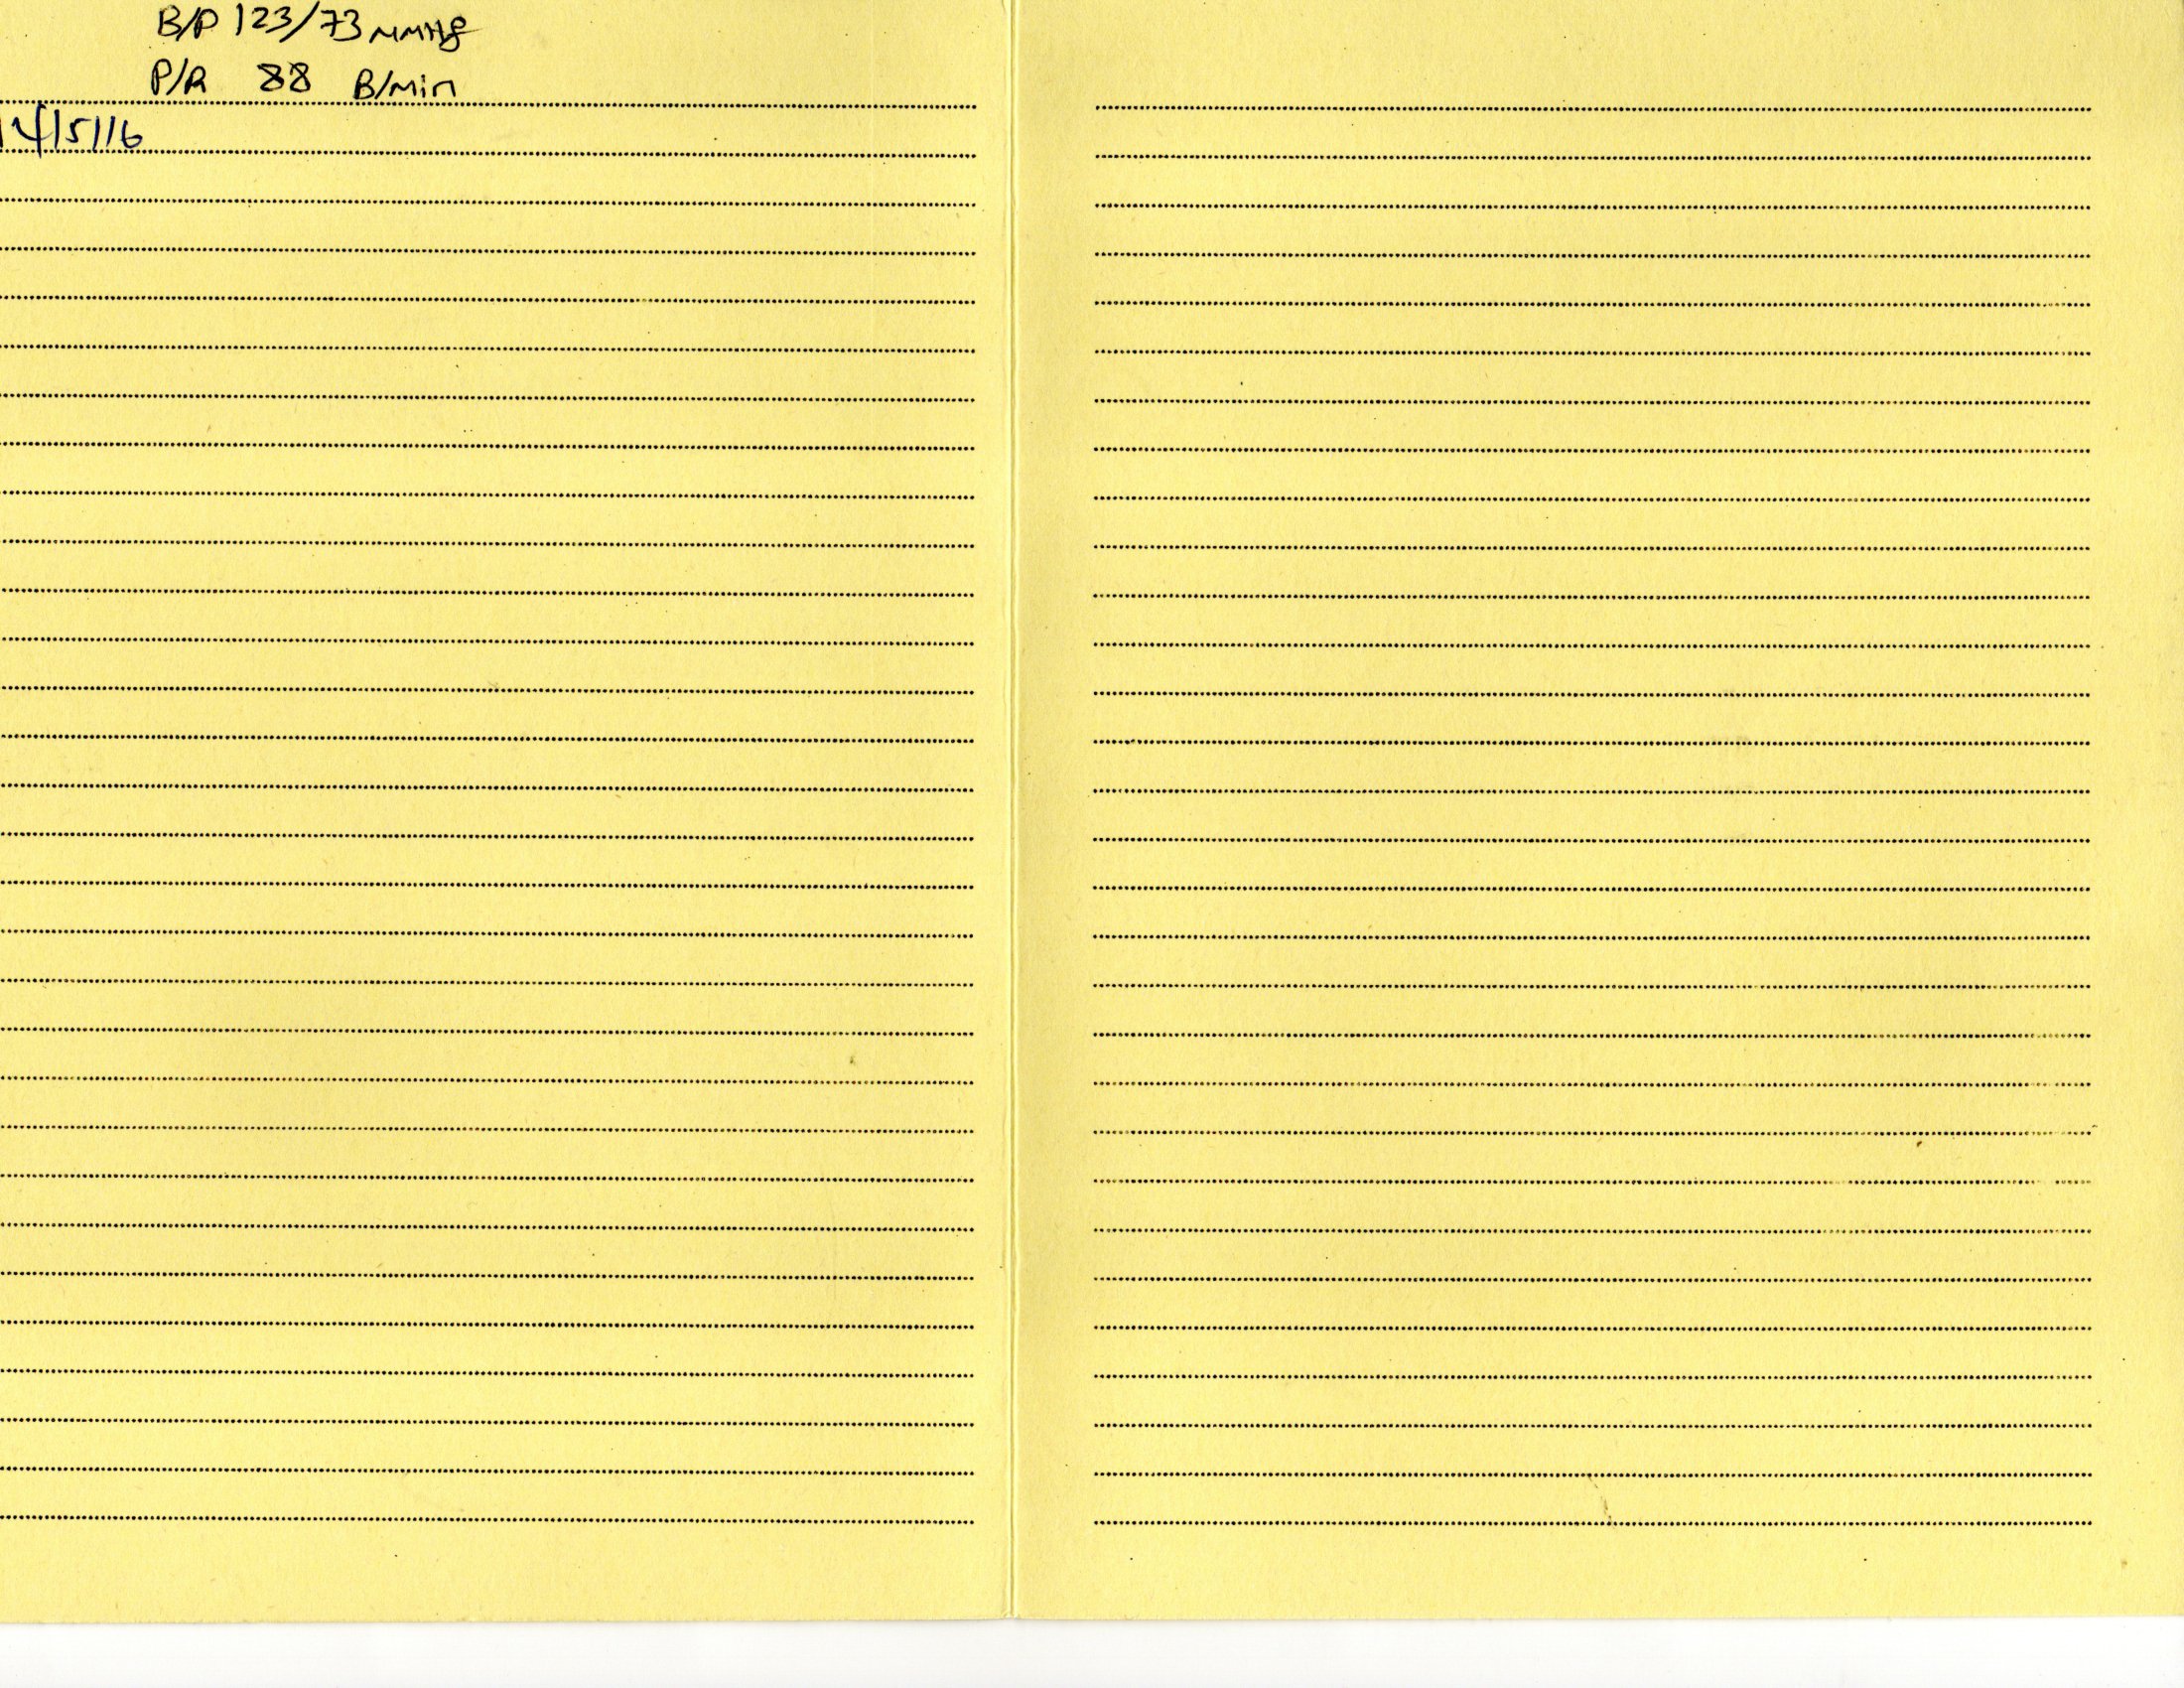 B/P 123/73 mmHg
P/R 88 B/Min
14/5/16